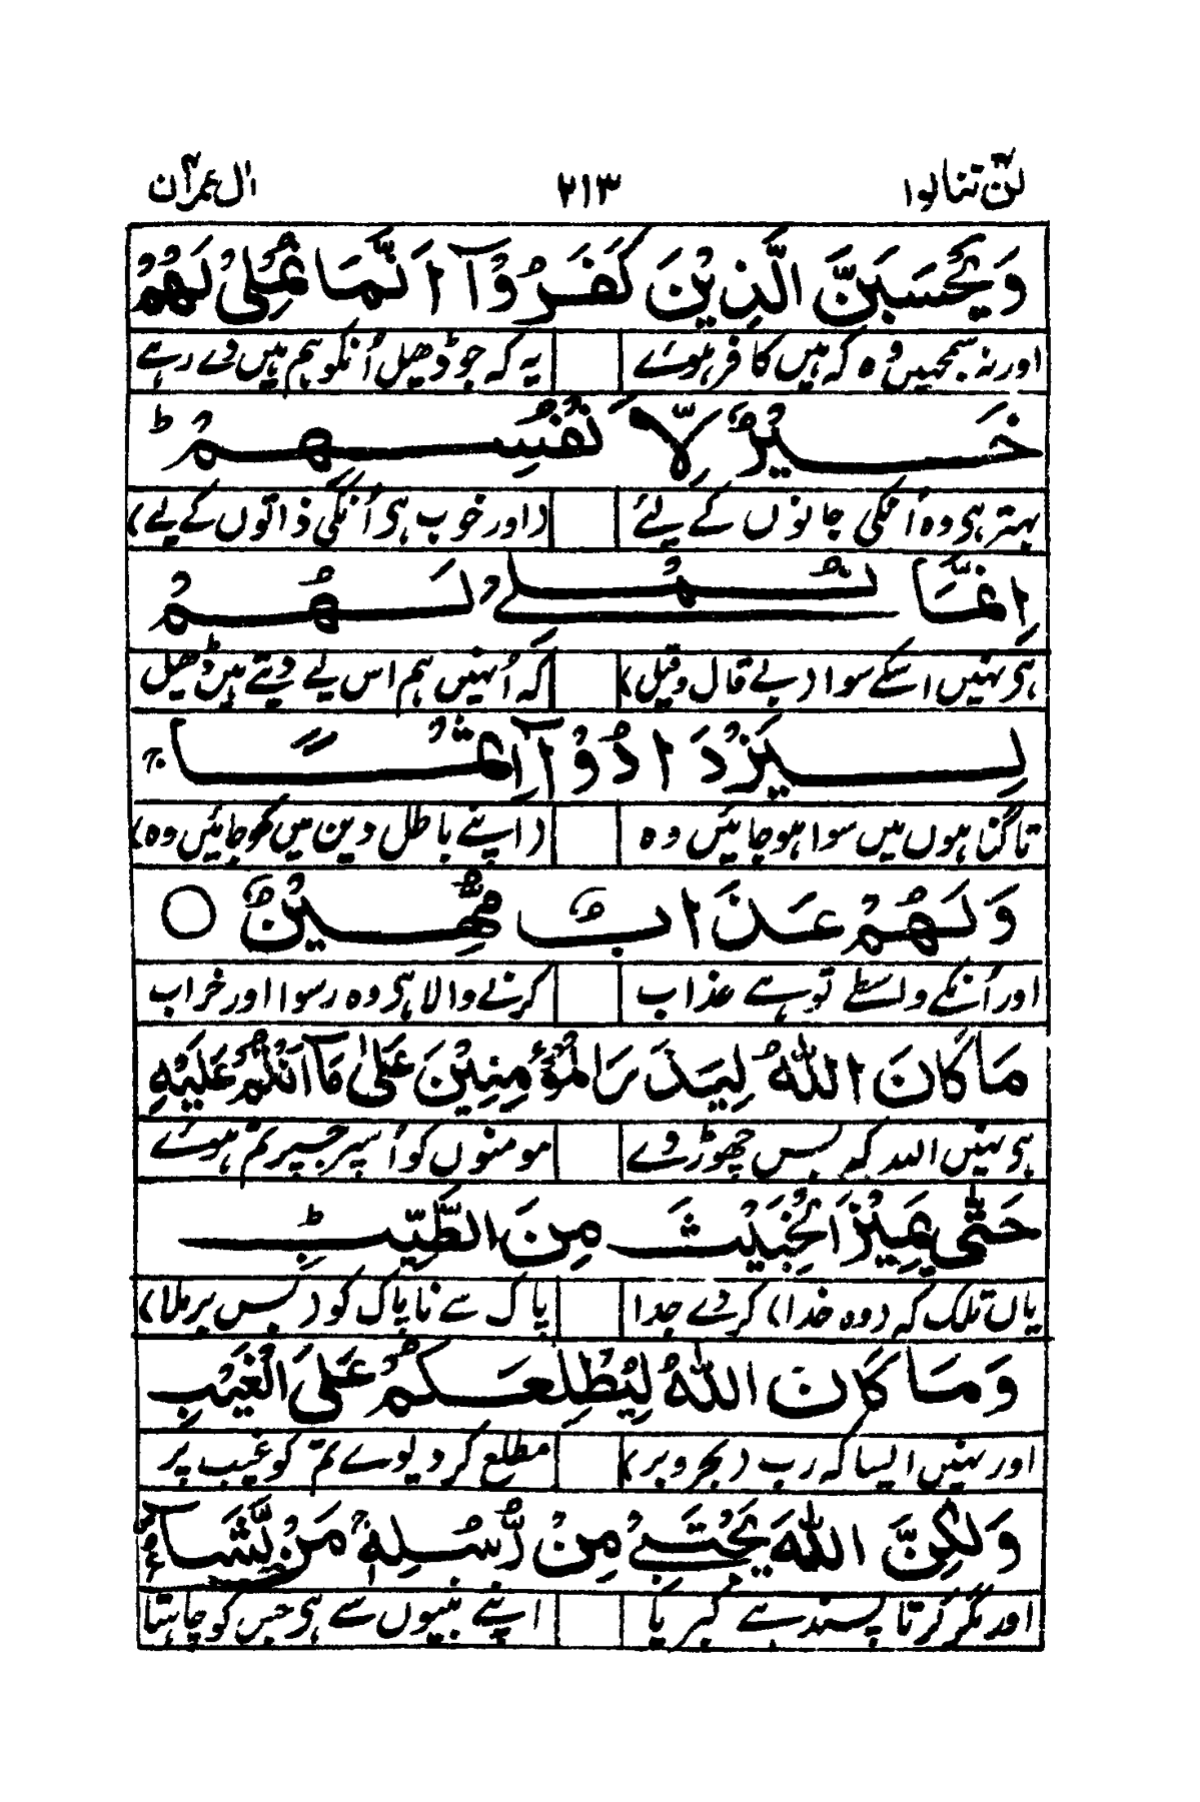 لن تنالوا ٢١٣ اٰل عمرٰن
وَلَا يَحْسَبَنَّ الَّذِيْنَ كَفَرُوْۤا اَنَّمَا نُمْلِىْ لَهُمْ
اور نہ سمجھیں وہ کہ ہیں کافر ہوئے یہ کہ جو ڈھیل اُنکو ہم ہیں دے رہے
خَيْرٌ لِّاَنْفُسِهِمْ ؕ
بہتر ہی وہ اُنکی جانوں کے لیئے (اور خوب ہی اُنکی ذاتوں کے لیے)
اِنَّمَا نُمْلِىْ لَهُمْ
ہی نہیں اسکے سوا (بے قال و قیل) کہ اُنہیں ہم اس لیے دیتے ہیں ڈھیل
لِيَزْدَادُوْۤا اِثْمًا ۚ
تا گناہوں میں سوا ہو جائیں وہ (اپنے باطل دین میں کھو جائیں وہ)
وَلَهُمْ عَذَابٌ مُّهِيْنٌ ○
اور اُنکے واسطے تو ہے عذاب کرنے والا ہی وہ رسوا اور خراب
مَا كَانَ اللّٰهُ لِيَذَرَ الْمُؤْمِنِيْنَ عَلٰى مَاۤ اَنْتُمْ عَلَيْهِ
ہی نہیں اللہ کہ بس چھوڑ دے مومنوں کو اُسپر جسپر تم ہوئے
حَتّٰى يَمِيْزَ الْخَبِيْثَ مِنَ الطَّيِّبِ ؕ
یاں تلک کہ (وہ خدا) کر دے جدا پاک سے ناپاک کو (بس برملا)
وَمَا كَانَ اللّٰهُ لِيُطْلِعَكُمْ عَلَى الْغَيْبِ
اور نہیں ایسا کہ رب (بحر و بر) مطلع کر دیوے تم کو غیب پر
وَلٰكِنَّ اللّٰهَ يَجْتَبِىْ مِنْ رُّسُلِهٖ مَنْ يَّشَآءُ
اور مگر کرتا پسند ہے کبریا اپنے نبیوں سے ہی جس کو چاہتا